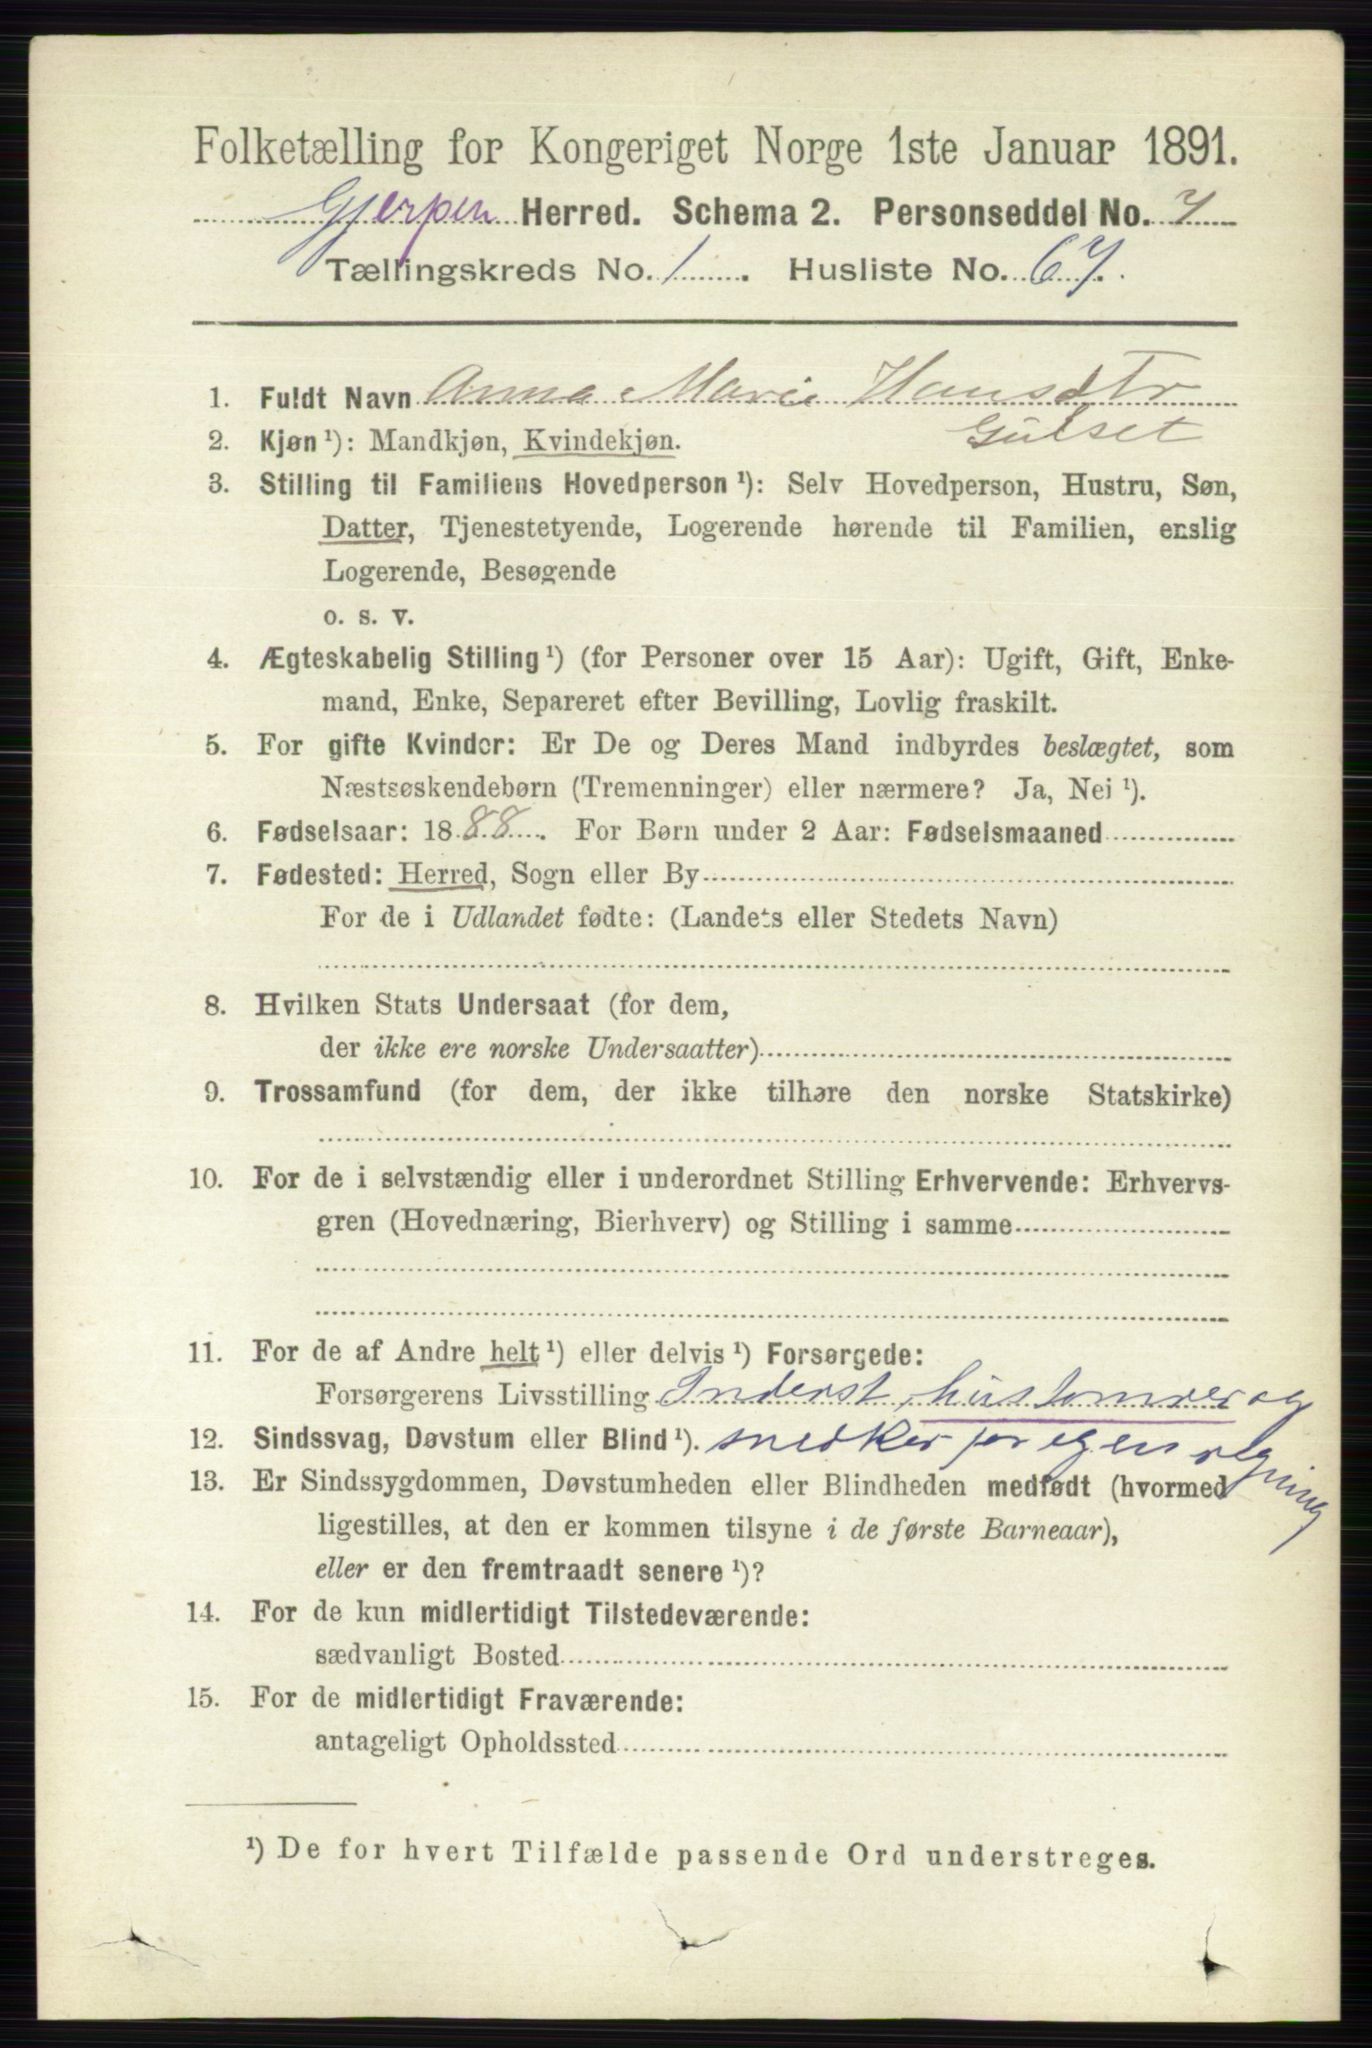 Folketælling for Kongeriget Norge 1ste Januar 1891.
Gjerpen Herred. Schema 2. Personseddel No. 7
Tællingskreds No. 1. Husliste No. 67.
1. Fuldt Navn Anna Marie Hansdtr
Gulset
2. Kjøn¹): Mandkjøn, Kvindekjøn.
3. Stilling til Familiens Hovedperson¹): Selv Hovedperson, Hustru, Søn,
Datter, Tjenestetyende, Logerende hørende til Familien, enslig
Logerende, Besøgende
o. s. v.
4. Ægteskabelig Stilling¹) (for Personer over 15 Aar): Ugift, Gift, Enke-
mand, Enke, Separeret efter Bevilling, Lovlig fraskilt.
5. For gifte Kvinder: Er De og Deres Mand indbyrdes beslægtet, som
Næstsøskendebørn (Tremenninger) eller nærmere? Ja, Nei¹).
6. Fødselsaar: 1888. For Børn under 2 Aar: Fødselsmaaned
7. Fødested: Herred, Sogn eller By
For de i Udlandet fødte: (Landets eller Stedets Navn)
8. Hvilken Stats Undersaat (for dem,
der ikke ere norske Undersaatter)
9. Trossamfund (for dem, der ikke tilhøre den norske Statskirke)
10. For de i selvstændig eller i underordnet Stilling Erhvervende: Erhvervs-
gren (Hovednæring, Bierhverv) og Stilling i samme
11. For de af Andre helt¹) eller delvis¹) Forsørgede:
Forsørgerens Livsstilling Inderst, hustømrer og
12. Sindssvag, Døvstum eller Blind¹). snedker for egen regning
13. Er Sindssygdommen, Døvstumheden eller Blindheden medfødt (hvormed
ligestilles, at den er kommen tilsyne i de første Barneaar),
eller er den fremtraadt senere¹)?
14. For de kun midlertidigt Tilstedeværende:
sædvanligt Bosted
15. For de midlertidigt Fraværende:
antageligt Opholdssted
¹) De for hvert Tilfælde passende Ord understreges.